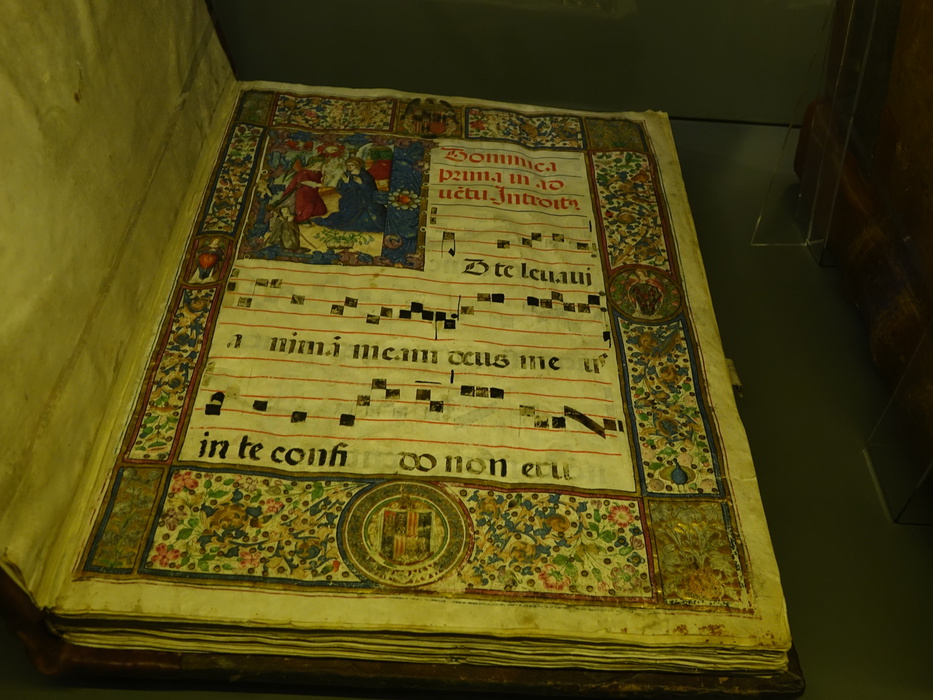 Dominica
prima in ad
uētu. Introitꝰ
D te leuaui
a nimā meam deus me us
in te confi do non eru